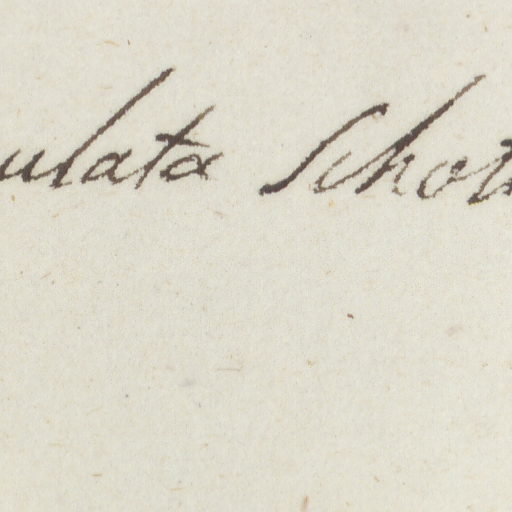 ulata Schot